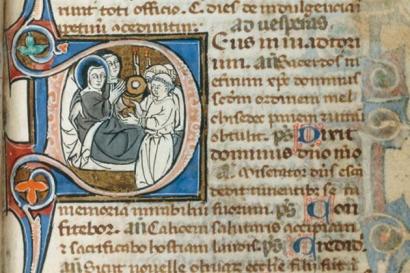 runt toti officio. C. dies de indulgencia
ad uesperas
Eus in adiutori
um. an Sacerdos in
eternum xpc dominus
scdm ordinem mel
chisedec panem uinum
obtulit. ps Dixit
dominus dno meo
an Miserator dns esca
dedit timentibus se in
memoria mirabiliu suorum. ps Con
fitebor. an Calicem salutaris accipiam
et sacrificabo hostiam laudis. ps Credidi.
an Sicut nouelle oliuar ecclie filii sint